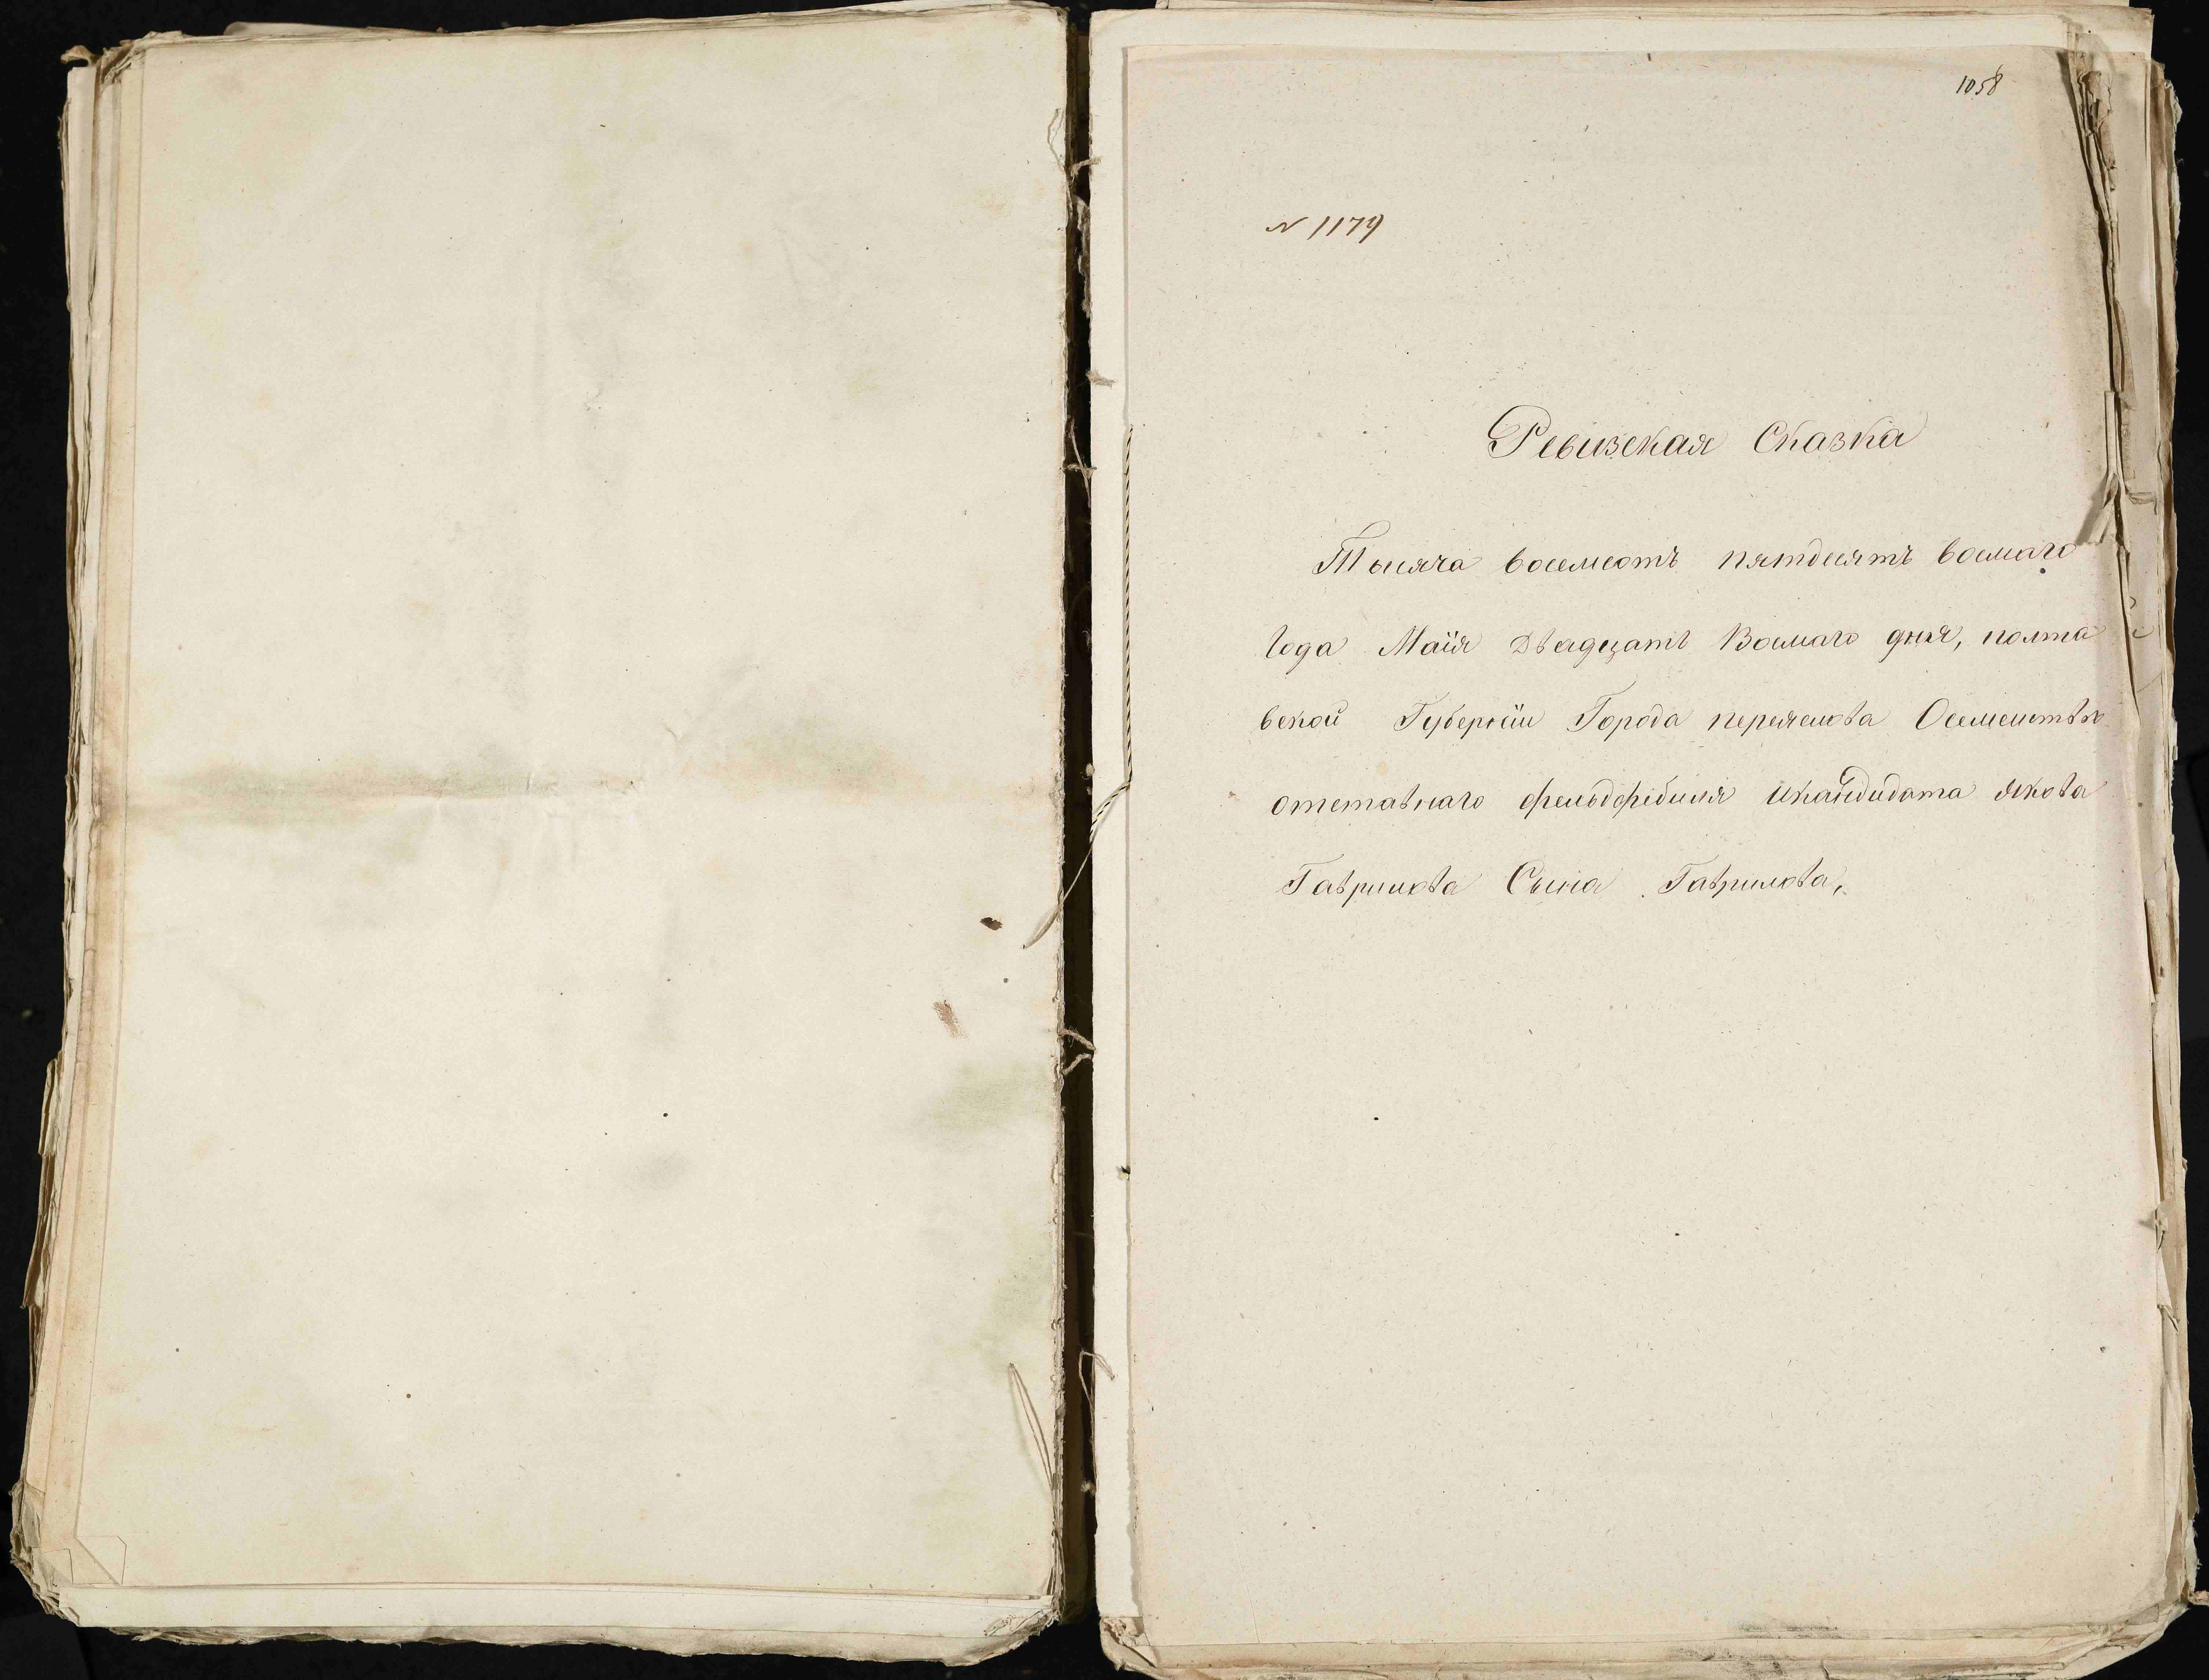 1058
№ 1179
Ревизская Сказка
Тысяча восемсотъ пятдесятъ восмаго
года Маія двадцать Восмаго дня, полта
вской Губерніи Города переяслова О семействѣ
отставнаго фельдфебиля икандидата якова
Гаврилова Сына Гаврилова,